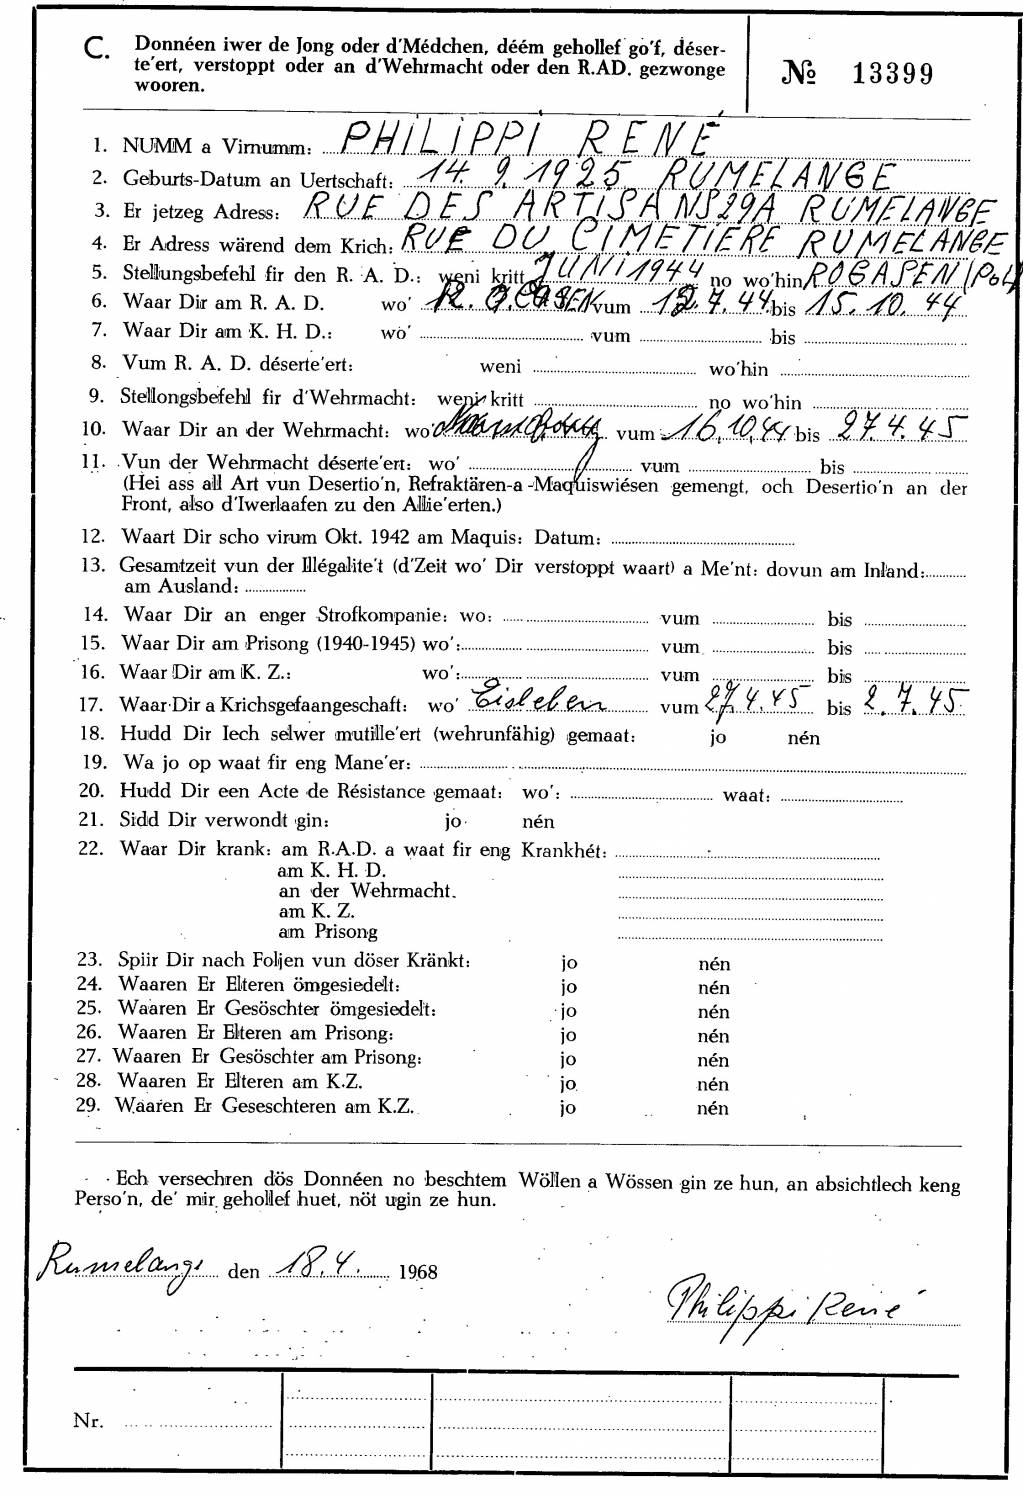 C. Donnéen iwer de Jong oder d'Médchen, déém gehollef go'f, déser-
te'ert, verstoppt oder an d'Wehrmacht oder den R.AD. gezwonge
wooren.
№ 13399
1. NUMM a Virnumm: PHILIPPI RENÉ
2. Geburts-Datum an Uertschaft: 14. 9. 1925 RUMELANGE
3. Er jetzeg Adress: RUE DES ARTISANS 29A RUMELANGE
4. Er Adress wärend dem Krich: RUE DU CIMETIÈRE RUMELANGE
5. Stellungsbefehl fir den R. A. D.: weni kritt JUNI 1944 no wo'hin ROGASEN (Pol)
6. Waar Dir am R. A. D. wo' vum 12.7.44. bis 15.10.44
7. Waar Dir am K. H. D.: wo' vum bis
8. Vum R. A. D. déserte'ert: weni wo'hin
9. Stellongsbefehl fir d'Wehrmacht: weni kritt no wo'hin
10. Waar Dir an der Wehrmacht: wo' vum 16.10.44 bis 27.4.45
11. Vun der Wehrmacht déserte'ert: wo' vum bis
(Hei ass all Art vun Desertio'n, Refraktären-a -Maquiswiésen gemengt, och Desertio'n an der
Front, also d'Iwerlaafen zu den Allie'erten.)
12. Waart Dir scho virum Okt. 1942 am Maquis: Datum:
13. Gesamtzeit vun der Illégalite't (d'Zeit wo' Dir verstoppt waart) a Me'nt: dovun am Inland:
am Ausland:
14. Waar Dir an enger Strofkompanie: wo: vum bis
15. Waar Dir am Prisong (1940-1945) wo': vum bis
16. Waar Dir am K. Z.: wo': vum bis
17. Waar Dir a Krichsgefaangeschaft: wo' Eisleben vum 27.4.45 bis 2.7.45
18. Hudd Dir Iech selwer mutille'ert (wehrunfähig) gemaat: jo nén
19. Wa jo op waat fir eng Mane'er:
20. Hudd Dir een Acte de Résistance gemaat: wo': waat:
21. Sidd Dir verwondt gin: jo nén
22. Waar Dir krank: am R.A.D. a waat fir eng Krankhét:
am K. H. D.
an der Wehrmacht.
am K. Z.
am Prisong
23. Spiir Dir nach Foljen vun döser Kränkt: jo nén
24. Waaren Er Elteren ömgesiedelt: jo nén
25. Waaren Er Gesöschter ömgesiedelt: jo nén
26. Waaren Er Elteren am Prisong: jo nén
27. Waaren Er Gesöschter am Prisong: jo nén
28. Waaren Er Elteren am K.Z. jo nén
29. Waaren Er Geseschteren am K.Z. jo nén
Ech versechren dös Donnéen no beschtem Wöllen a Wössen gin ze hun, an absichtlech keng
Perso'n, de' mir gehollef huet, nöt ugin ze hun.
Rumelange den 18.4. 1968
Philippi René
Nr.